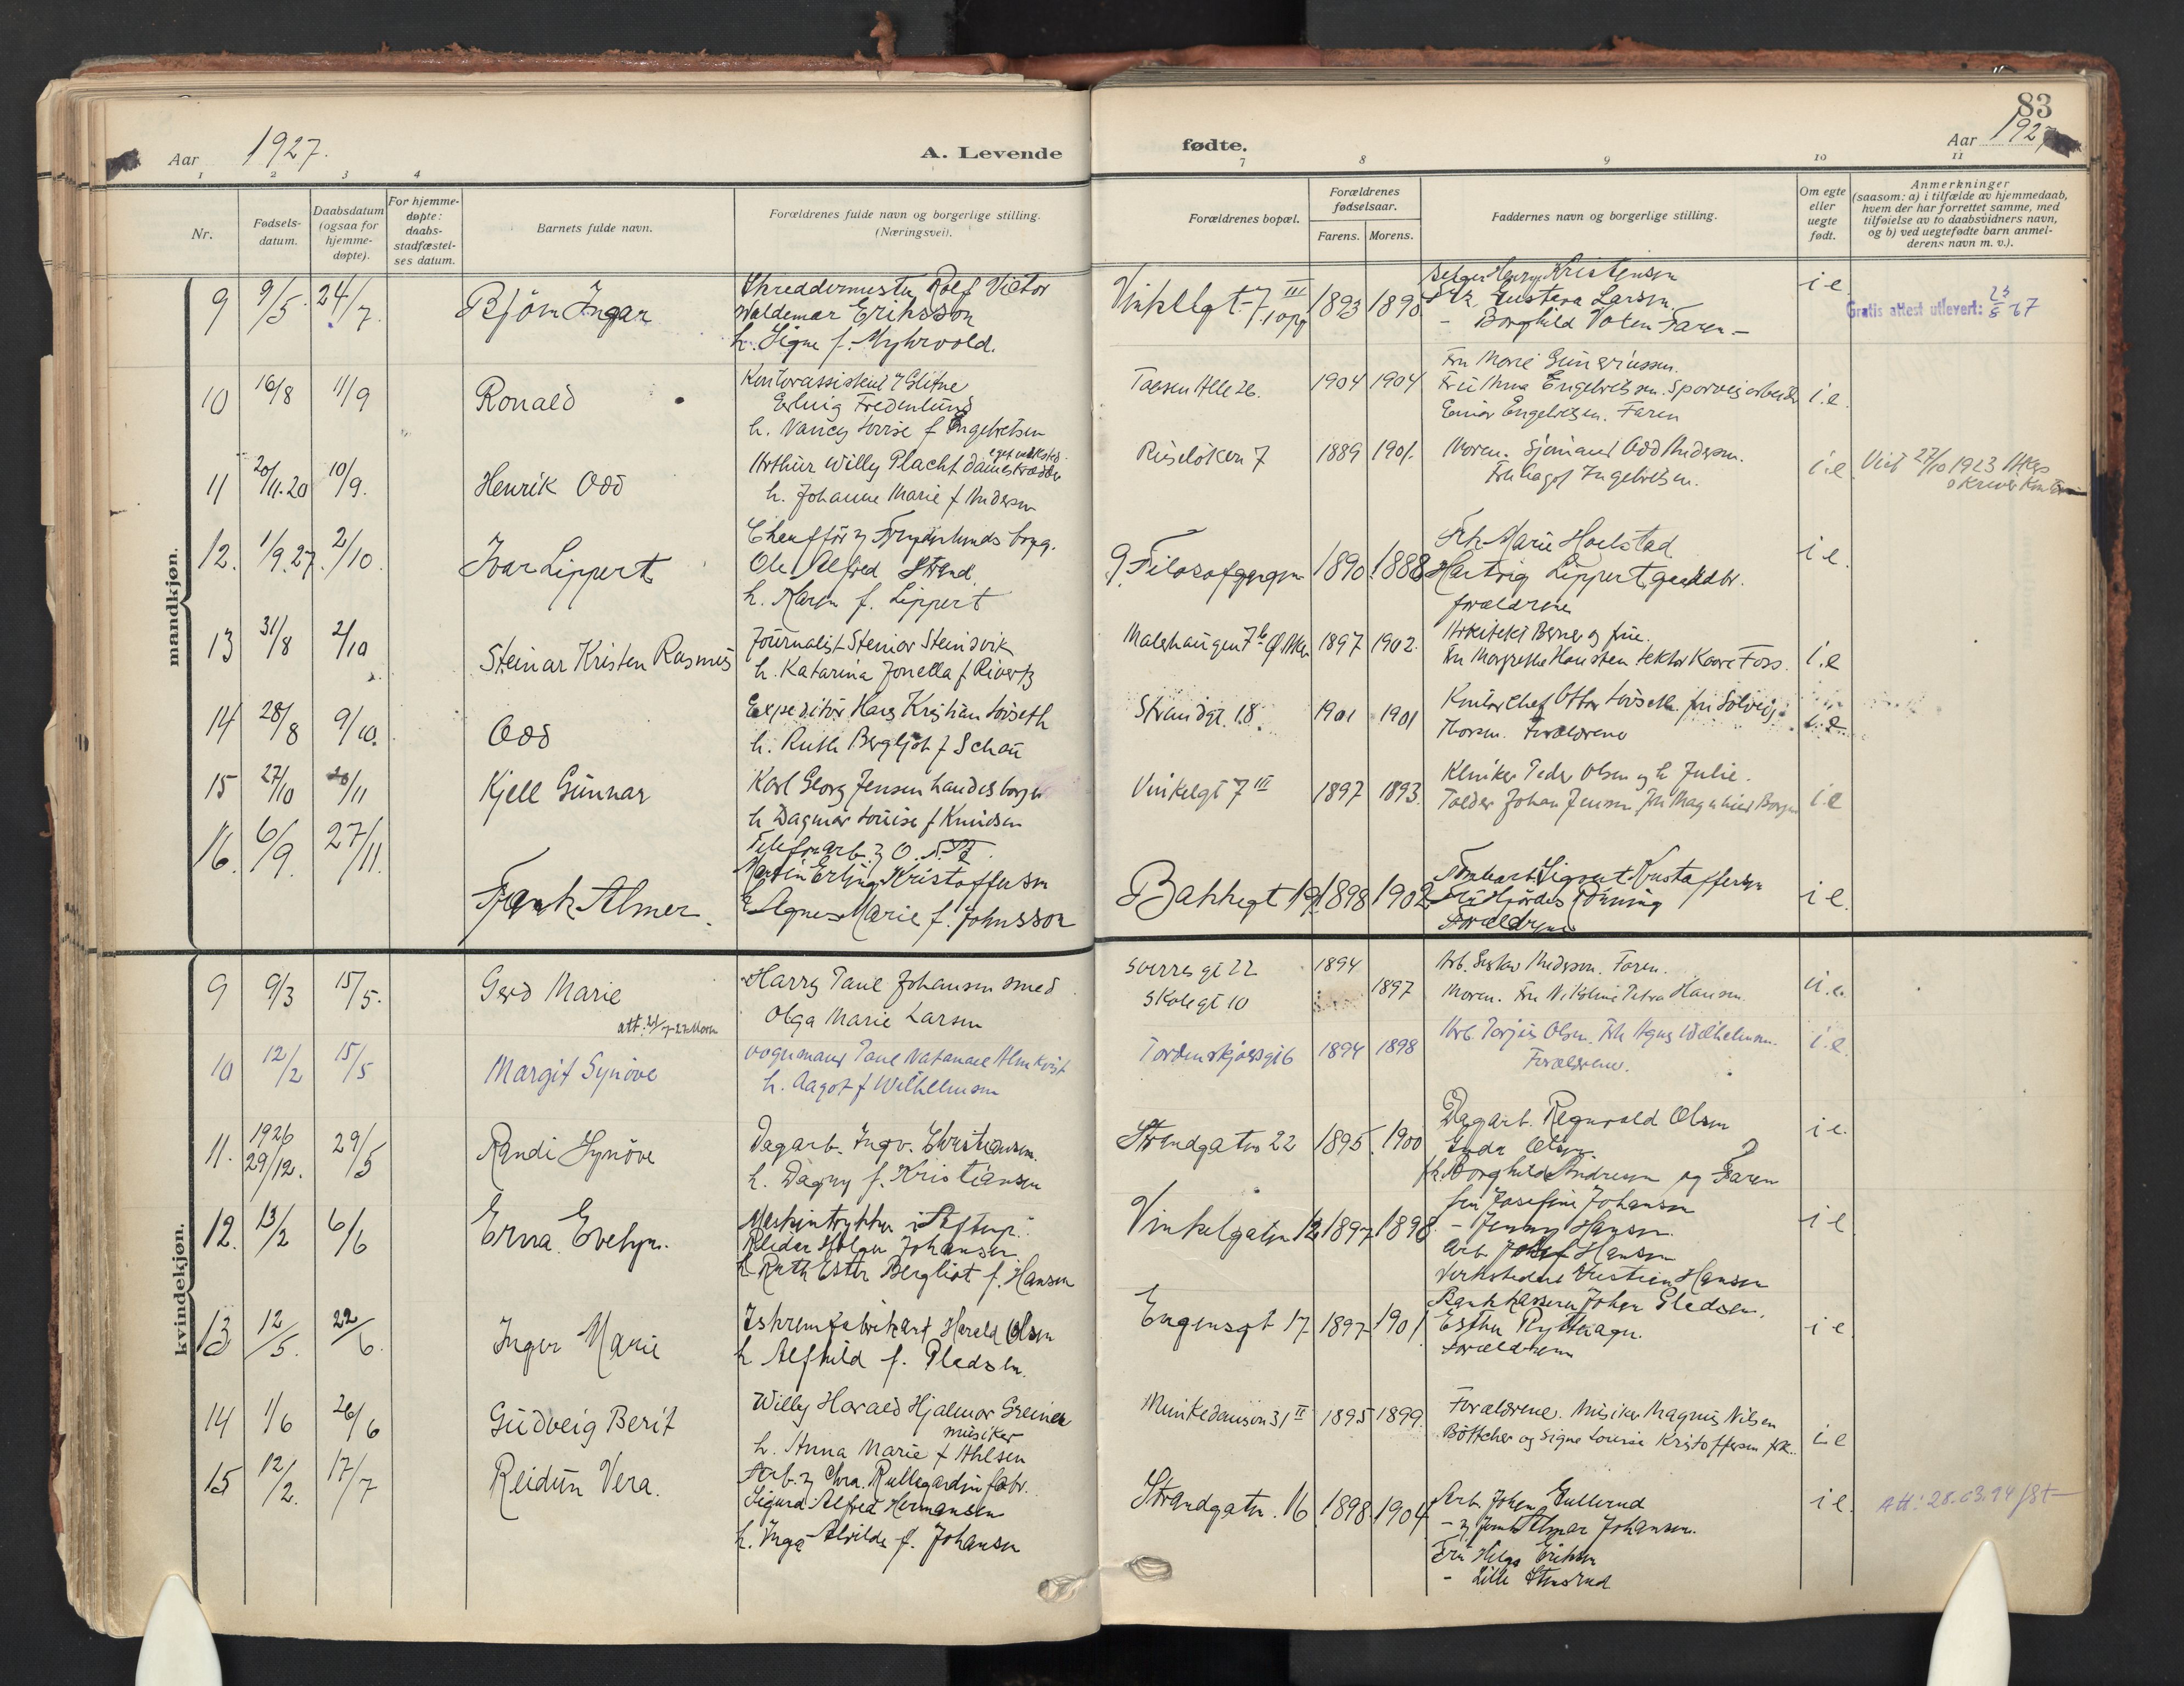 83
Aar 1927.
A. Levende
fødte.
Aar 1927
1 2 3 4
7 8 9 10 11
Nr.
Fødsels-
datum.
Daabsdatum
(ogsaa for
hjemme-
døpte).
For hjemme-
døpte:
daabs-
stadfæstel-
ses datum.
Barnets fulde navn.
Forældrenes fulde navn og borgerlige stilling.
(Næringsvei).
Forældrenes bopæl.
Forældrenes
fødselsaar.
Farens. Morens.
Faddernes navn og borgerlige stilling.
Om egte
eller
uegte
født.
Anmerkninger
(saasom: a) i tilfælde av hjemmedaab,
hvem der har forrettet samme, med
tilføielse av to daabsvidners navn,
og b) ved uegtefødte barn anmel-
derens navn m. v.).
mandkjøn.
9 9/5. 24/7. Bjørn Ingar
Skreddermester Rolf Victor
Waldemar Eriksson
h. Signe f. Myhrvold.
Vinkelgt. 7 III
1893 1895
Henry Kristensen
Gustava Larsen
- Borghild Faren -
i e
Gratis attest utlevert: 23/5 67
10 16/8 11/9 Ronald
Kontorassistent
Fredenlund
h. Nancy Lovise f Engebretsen
Taasen Alle 26. 1904 1904
Fru Marie Gundriussen.
Fru Anna Engebretsen. Sporveisarbeider
Einar Engebretsen. Faren
i.e.
11 20/11.20 10/9. Henrik Odd
eget verksted
Arthur Willy Placht dameskrædder
h. Johanne Marie f Andersen
Ruseløkvn 7 1889 1901.
Moren. Sjømand Odd Andersen.
Fru Aagot Ingebretsen.
i.e. Viet 27/10 1923
12. 1/9.27. 2/10. Ivar Lippert
Chauffør v Frydenlunds bryg.
Ole Alfred Strand.
h. Karen f. Lippert
9 Filosofgangen 1890. 1888
Frk Marie Hoelstad
Hartvig Lippert, gaardbr.
forældrene
i e.
13 31/8 2/10 Steinar Kristen Rasmus
Journalist Steinar Steinsvik
h. Katarina Jonella f Rivertz
Malerhaugen 7b Ø. Aker 1897 1902.
Arkitekt Berner og frue.
Fru Margrethe Hansteen lektor Kaare Foss.
i.e
14 28/8 9/10. Odd
Expeditør Hans Kristian Lovseth
h. Ruth Bergljot f Schau
Strandgt. 18. 1901 1901
Kontorchef Otto Lovseth fru Solveig
Thorsen. Forældrene
i.e.
15 27/10 /11 Kjell Gunnar
Karl Georg Jensen handelsborger
h Dagmar Louise f Knudsen
Vinkelgt 7 III 1897 1893.
Klinker Peder Olsen og h Julie.
Tolder Johan Jensen frk Magnhild Borgen
i.e
16. 6/9. 27/11. Frank Almer.
Telefonarb. v O.
Martin Erling Kristoffersen
h Agnes Marie f. Johnsson
Bakkegt 19 1898 1902
Sigurd Kristoffersen
Fru Hjørdis Rønning
Forældrene
i e.
kvindekjøn.
9 9/3 15/5. Gerd Marie
att. 21/7-27 Moren
Harry Paul Johansen smed
Olga Marie Larsen
Sverres gt 22 1894
Skolegt 10 1897
Arb. Gustav Andersen. Faren.
Moren. Fru Nikoline Petra Hansen.
u.e.
10 12/2 15/5 Margit Synøve
vognmand Paul Natanael Almkvist
h. Aagot f Wilhelmsen
Tordenskjoldsgt 6 1894 1898
Arb. Torjus Olsen. Frk Agnes Wilhelmsen.
Forældrene.
i.e.
11. 1926 29/12. 29/5 Randi Synøve
Dagarb. Ingv. Christiansen.
h. Dagny f. Kristiansen
Strandgaten 22 1895. 1900
Dagarb. Regnvald Olsen
Olsen
frk. Borghild Andresen og Faren
i e.
12. 13/2 6/6 Erna Evelyn.
Maskintrykker i Aftenp.
Reidar Holger Johansen
h Ruth Ester Bergliot f. Hansen
Vinkelgaten 12 1897 1898
fru Josefine Johansen
- Jenny Hansen.
Arb. Josef Hansen
Verksteds Kristian Hansen
i e
13 12/5. 22/6. Inger Marie
Iskremfabrikant Harald Olsen
h Alfhild f. Pladsen.
Engensgt 17 1897 1901
Bankkasserer Johan Pladsen.
Esther Rytterager.
forældrene
i e.
14 1/6 26/6 Gudveig Berit
Willy Harald Hjalmar Greiner
musiker
h. Anna Marie f Ahlsen
Munkedamsvn 31 II 1895 1899.
Forældrene. Musiker Magnus Nilsen
Bøttcher og Signe Lovise Kristoffersen frk.
i.e
15 12/2. 17/7 Reidun Vera.
Arb. v Chra. Rullegardinfabr.
Sigurd Alfred Hermansen
h. Inga Alvilde f. Johansen
Strandgaten. 16 1898. 1904
Arb. Johan Gullerud
- v Almar Johansen.
Fru Helga Eriksen
- Lilli Stensrud
i e. Att: 28.03.94 fst